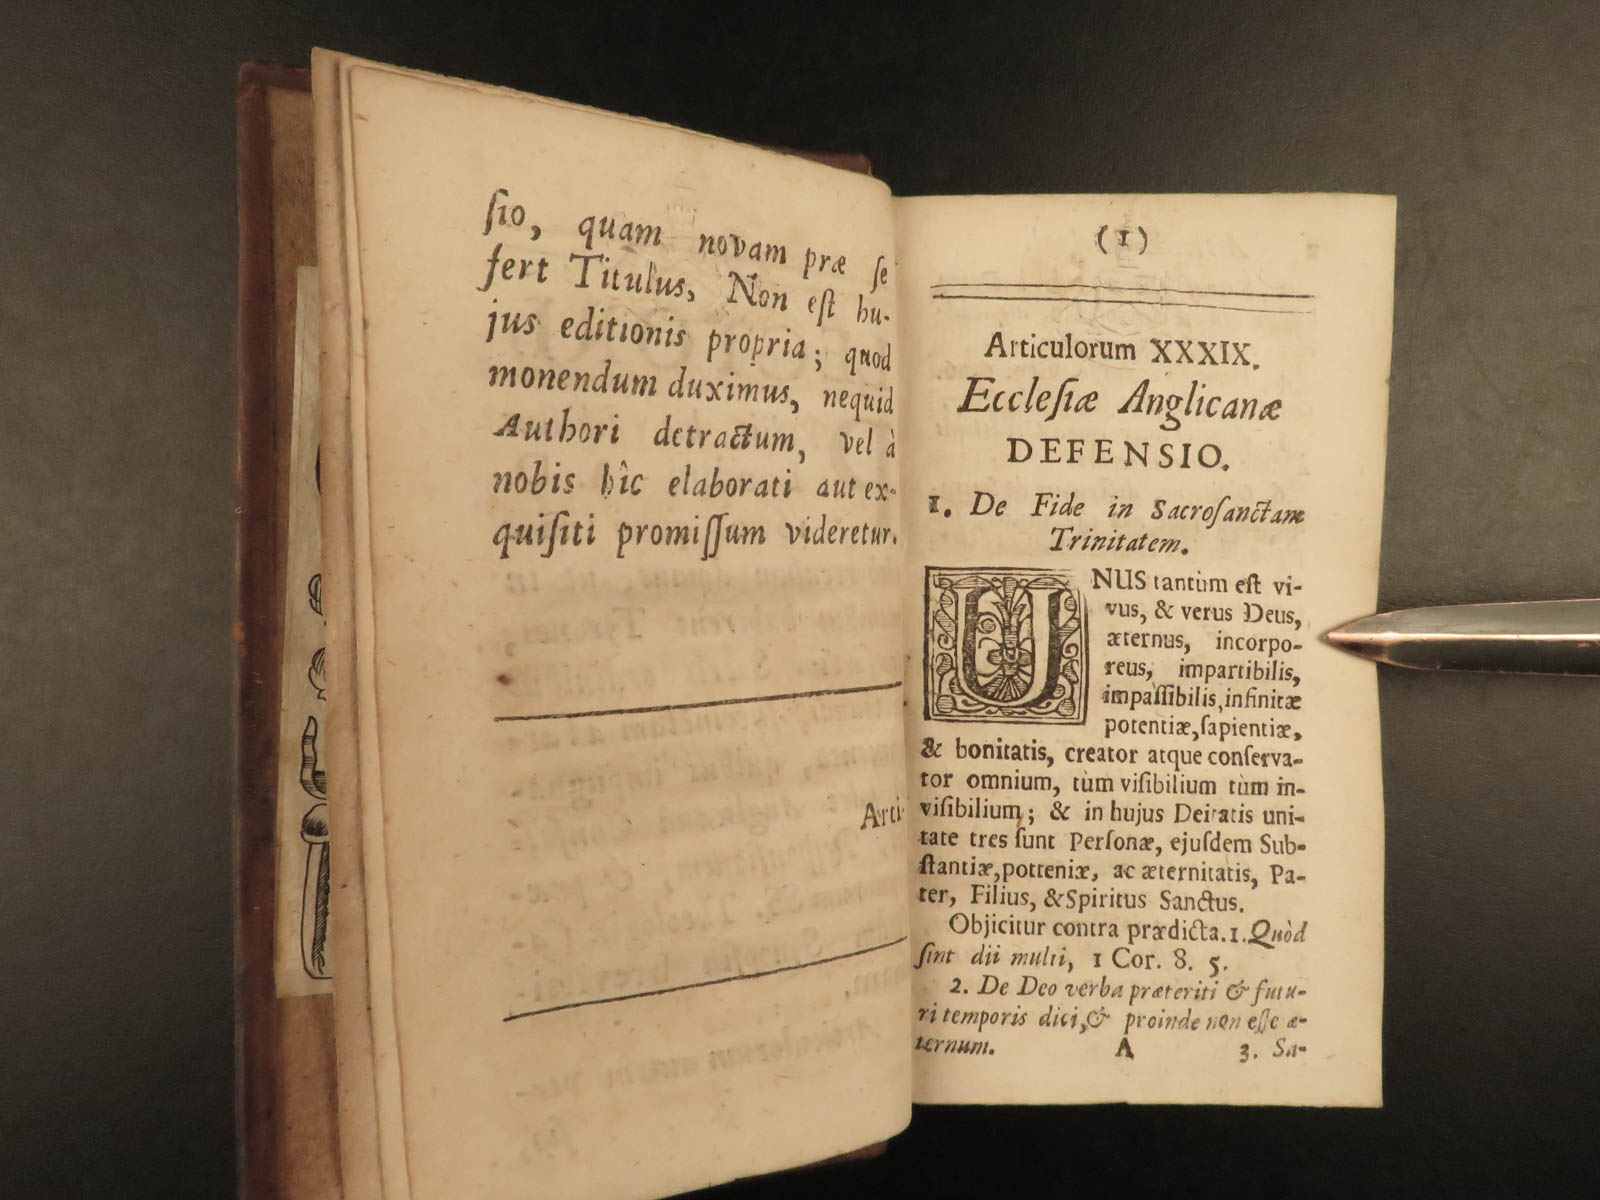 ſio, quam novam præ ſe
fert Titulus, Non eſt hu-
jus editionis propria; quod
monendum duximus, nequid
Authori detractum, vel à
nobis hîc elaborati aut ex-
quiſiti promiſſum videretur.
Arti-
(1)
Articulorum XXXIX.
Eccleſiæ Anglicanæ
DEFENSIO.
1. De Fide in Sacroſanctam
Trinitatem.
UNUS tantùm eſt vi-
vus, & verus Deus,
æternus, incorpo-
reus, impartibilis,
impaſſibilis, infinitæ
potentiæ, ſapientiæ,
& bonitatis, creator atque conſerva-
tor omnium, tùm viſibilium tùm in-
viſibilium; & in hujus Deitatis uni-
tate tres ſunt Perſonæ, ejuſdem Sub-
ſtantiæ, potteniæ, ac æternitatis, Pa-
ter, Filius, & Spiritus Sanctus.
Objicitur contra prædicta. 1. Quòd
ſint dii multi, 1 Cor. 8. 5.
2. De Deo verba præteriti & futu-
ri temporis dici, & proinde non eſſe æ-
ternum.
A 3. Sa-